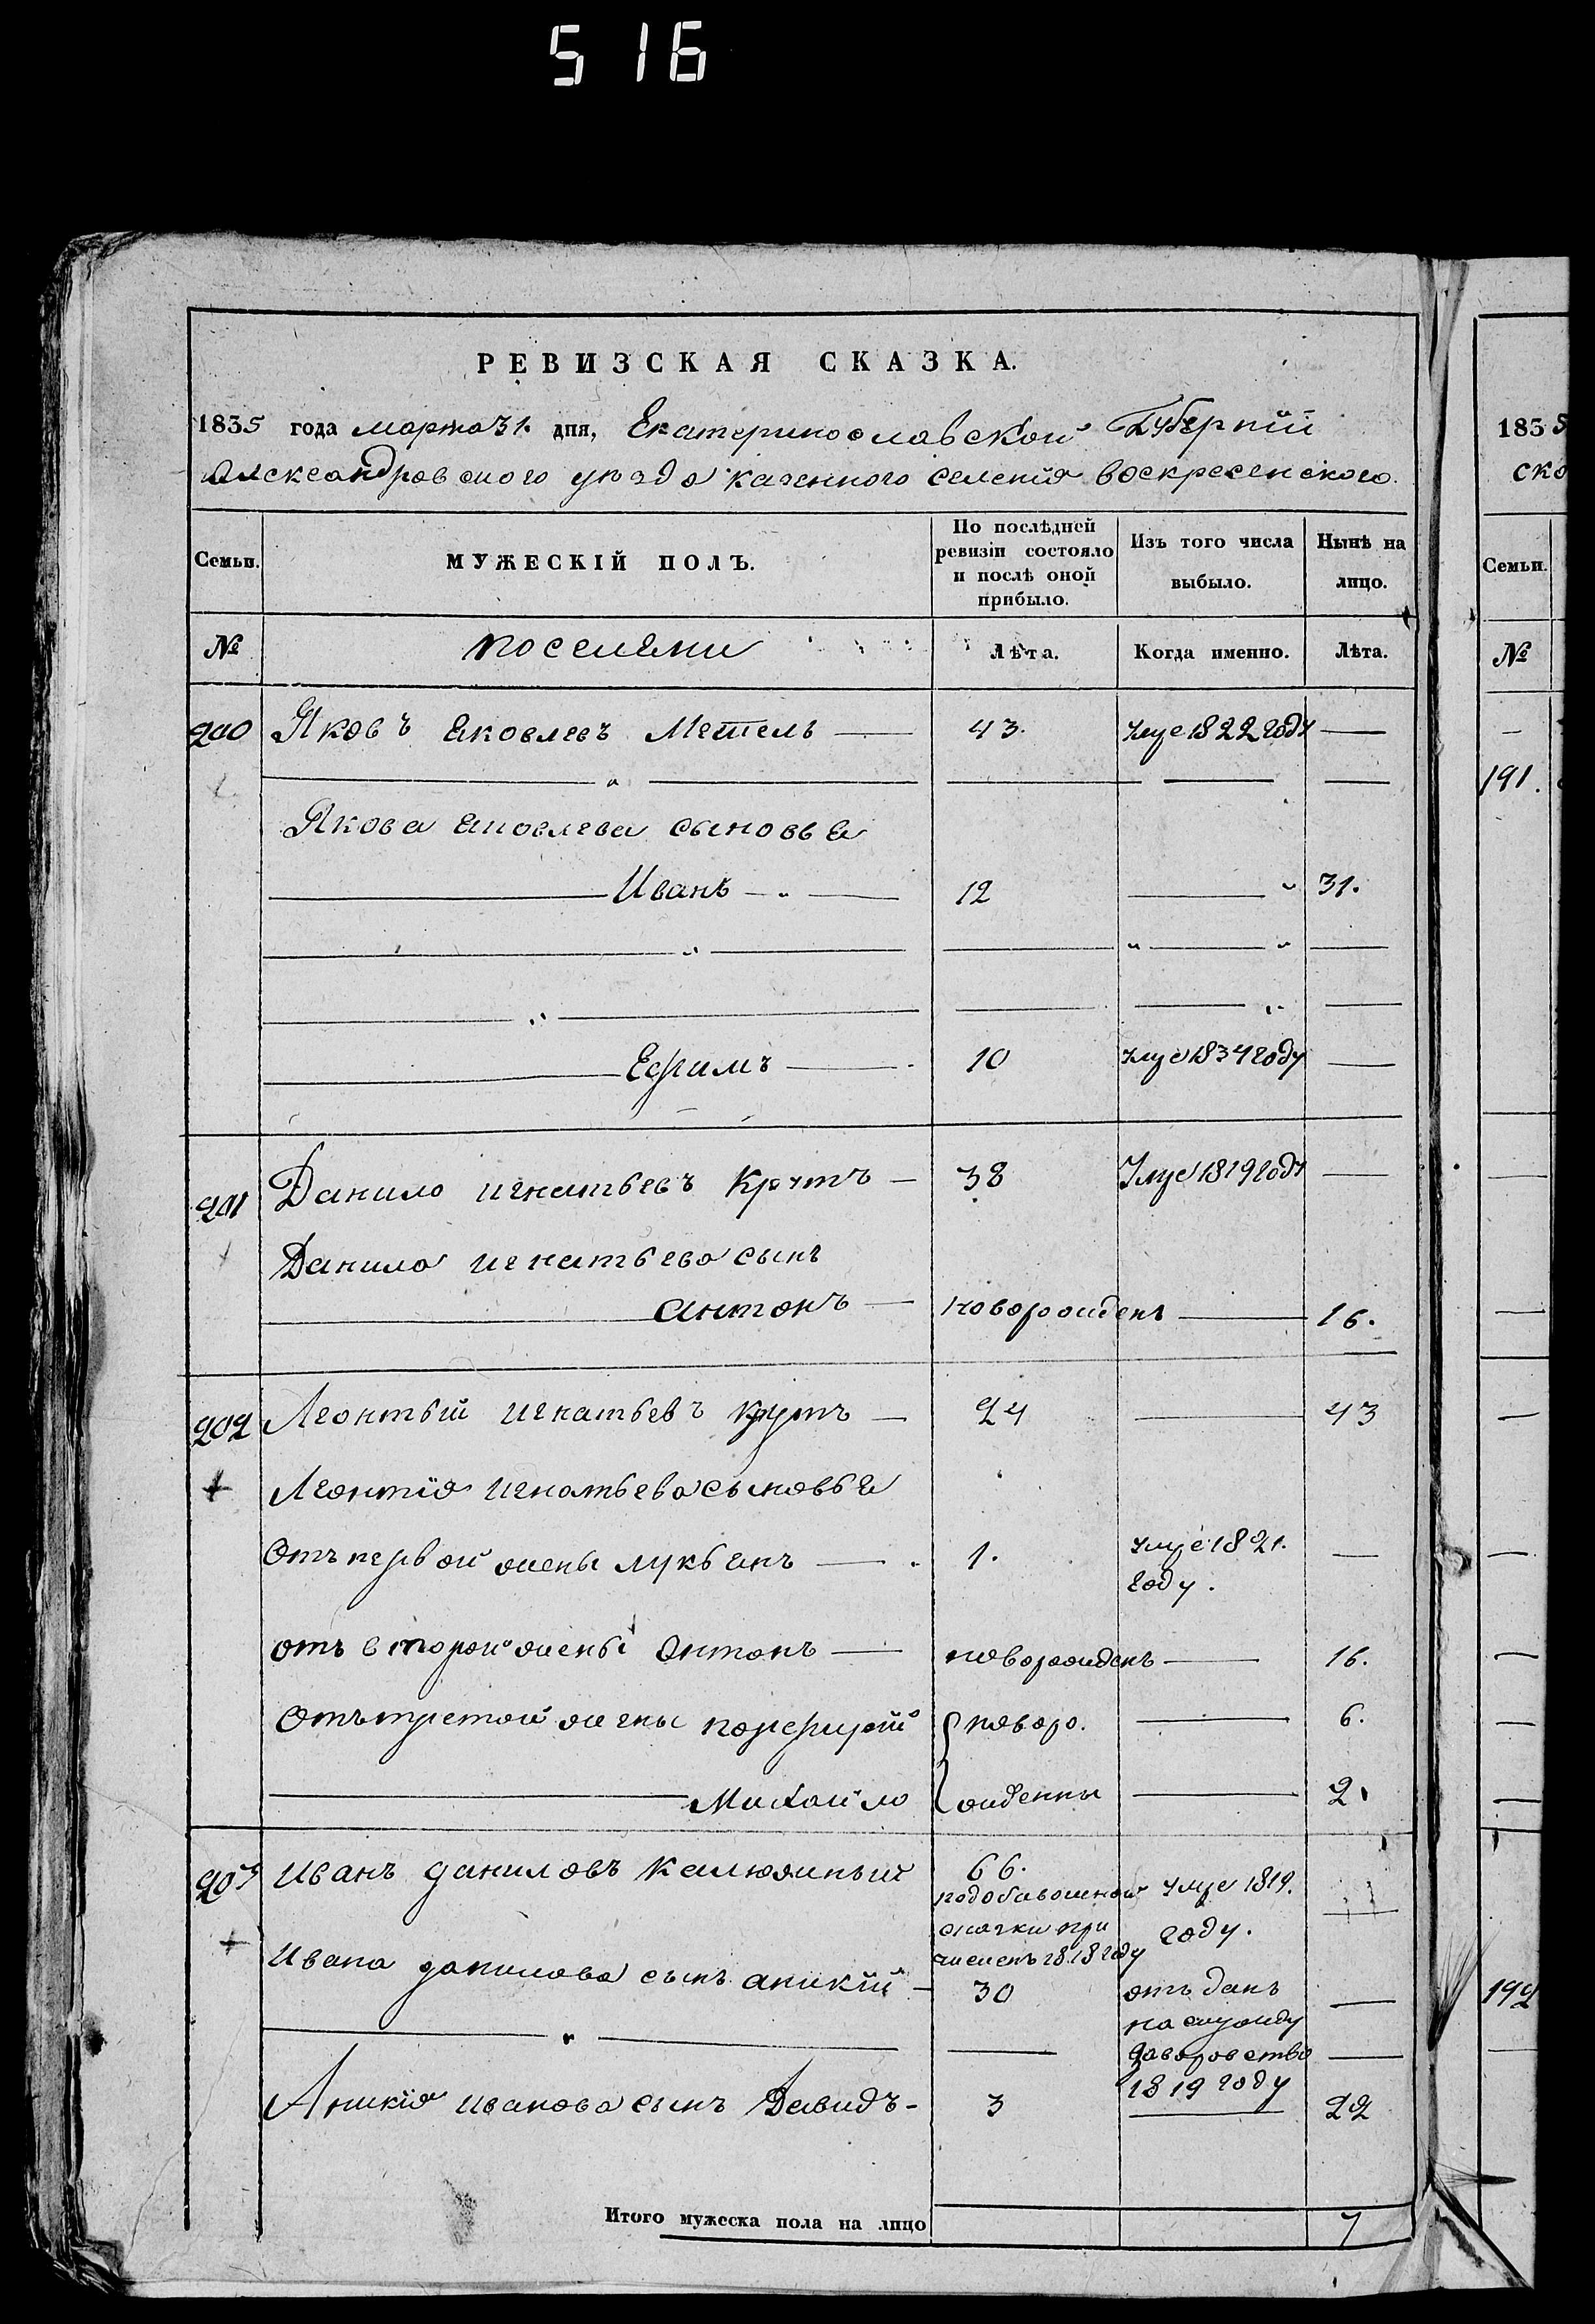 516
РЕВИЗСКАЯ СКАЗКА.
1835 года марта 31. дня, Екатеринославской Губернïй
Александровского уезда казенного селенïя воскресенского.
Семьи. МУЖЕСКІЙ ПОЛЪ. По послѣдней ревизіи состояло и послѣ оной прибыло. Изъ того числа выбыло. Нынѣ на лицо.
№ поселяни Лѣта. Когда именно. Лѣта.
200 Яковъ Яковлевъ Метель 43. Умре 1822 году
Якова Яковлева сыновья
Иванъ 12 31.
Ефимъ 10 Умре 1834 году
201 Данило игнатьевъ Крутъ 38 Умре 1819 году
Данила игнатьева сынъ
антонъ новорожденъ 16.
202 Леонтьий игнатьевъ крутъ 24 43
Леонтïя игнатьева сыновья
Отъ первой жены лукьянъ 1. умре 1821.
году.
отъ второй жены Антонъ новорожденъ 16.
Отъ третой жены порфирïй новоро. 6.
Михайло жденны 2.
203 Иванъ даниловъ Калюжный 66. умре 1819.
подобавошной
сказки при году.
численъ 1818 году
Ивана данилова сынъ аникïй 30 отъданъ
на службу
заворовство
1819 году
Аникïя иванова сынъ Давидъ 3 22
Итого мужеска пола на лицо 7
1835
ско
Семьи.
№
191.
192